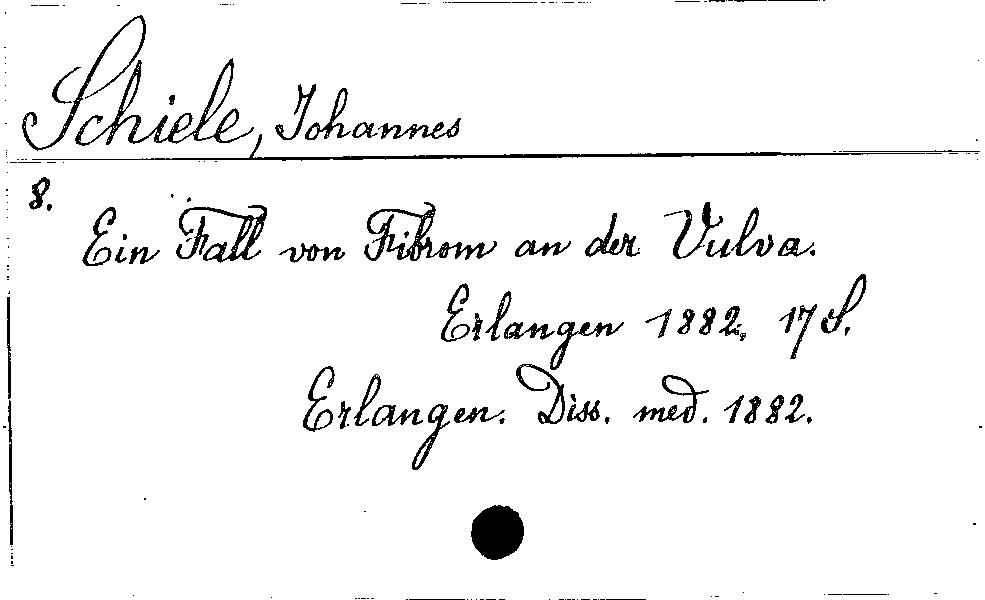 Schiele, Johannes
8.
Ein Fall von Fibrom an der Vulva.
Erlangen 1882, 17 S.
Erlangen. Diss. med. 1882.